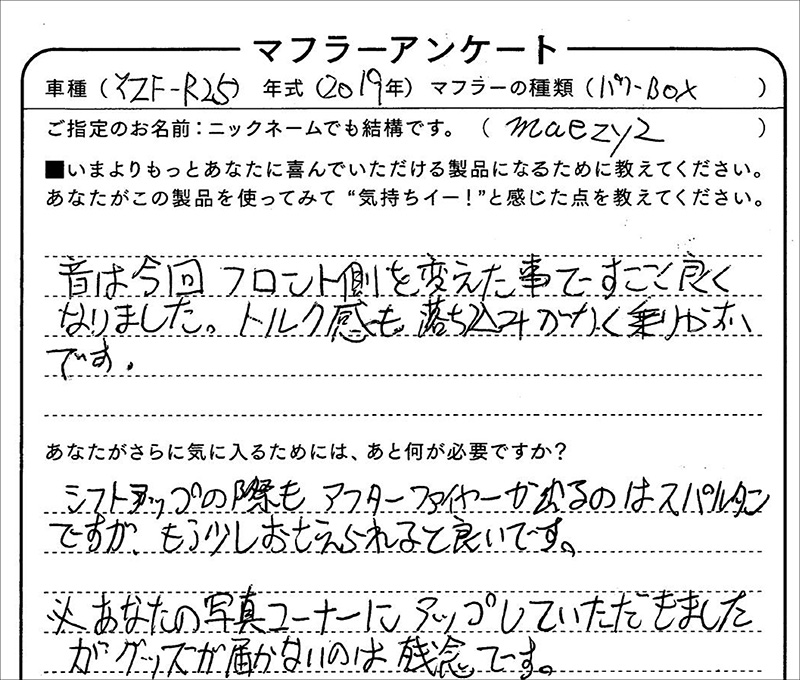 マフラーアンケート
車種（YZF-R25）年式（2019年）マフラーの種類（パワーBOX）
ご指定のお名前：ニックネームでも結構です。（maezy2）
■いまよりもっとあなたに喜んでいただける製品になるために教えてください。
あなたがこの製品を使ってみて“気持ちイー！”と感じた点を教えてください。
音は今回フロント側を変えた事ですごく良く
なりました。トルク感も落ち込みがなく乗りやすい
です。
あなたがさらに気に入るためには、あと何が必要ですか？
シフトアップの際もアフターファイヤーが出るのはスパルタン
ですが、もう少しおさえられると良いです。
※あなたの写真コーナーにアップしていただきました
がグッズが届かないのは残念です。